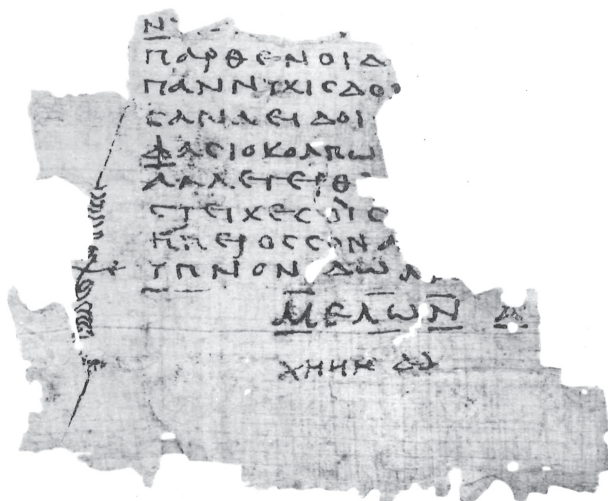 Ν
ΠΑΡΘΕΝΟΙΔ
ΠΑΝΝΥΧΙϹΔΟ
ϹΑΝΑΕΙΔΟΙ
ΦΑϹΙΟΚΟΛΠΩ
ΑΛΛΕΓΕΡΘ
ϹΤΕΙΧΕϹΟΙϹ
ΗΠΕΡΟϹϹΟΝΑ
ΥΠΝΟΝ ΔΩΜ
ΜΕΛΩΝ Α
ΧΗΗΗ ΔΔ